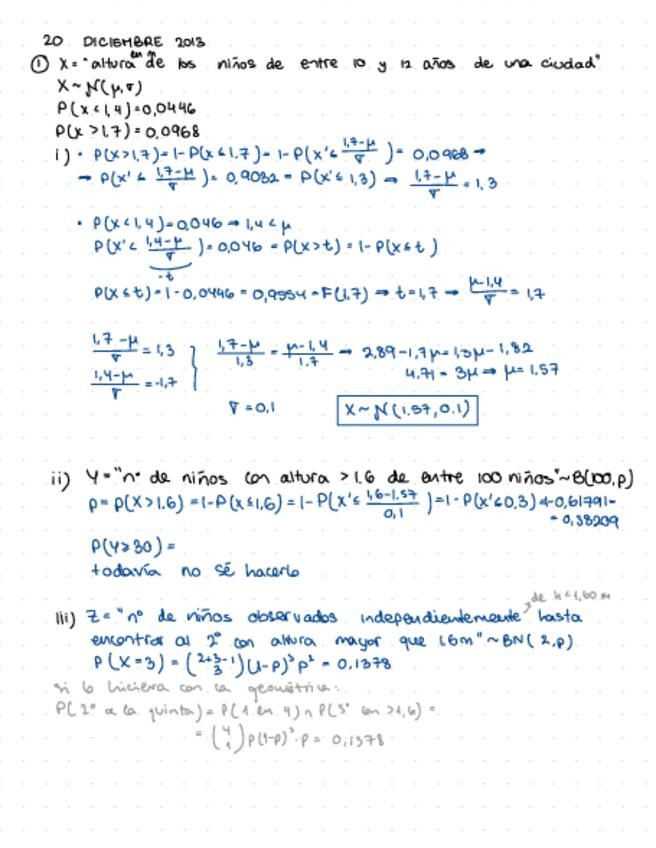 20 DICIEMBRE 2013
① X = "altura en m de los niños de entre 10 y 12 años de una ciudad"
X ~ N(μ, σ)
P(X < 1,4) = 0,0446
P(X > 1,7) = 0,0968
i) • P(X > 1,7) = 1 - P(X ≤ 1,7) = 1 - P(X' ≤ (1,7-μ)/σ) = 0,0968 →
→ P(X' ≤ (1,7-μ)/σ) = 0,9032 = P(X' ≤ 1,3) → (1,7-μ)/σ = 1,3
• P(X < 1,4) = 0,046 → 1,4 < μ
P(X' < (1,4-μ)/σ) = 0,046 = P(X > t) = 1 - P(X ≤ t)
-t
P(X ≤ t) = 1 - 0,0446 = 0,9554 = F(1,7) → t = 1,7 → (μ-1,4)/σ = 1,7
(1,7-μ)/σ = 1,3 } (1,7-μ)/1,3 = (μ-1,4)/1,7 → 2,89 - 1,7μ = 1,3μ - 1,82
(1,4-μ)/σ = -1,7 4.71 = 3μ → μ = 1.57
σ = 0,1 X ~ N(1.57, 0.1)
ii) Y = "nº de niños con altura > 1.6 de entre 100 niños" ~ B(100, p)
p = P(X > 1.6) = 1 - P(X ≤ 1,6) = 1 - P(X' ≤ (1,6-1,57)/0,1) = 1 - P(X' ≤ 0,3) = 1 - 0,61791 =
= 0,38209
P(Y ≥ 30) =
todavía no sé hacerlo
de h < 1,60 m
iii) Z = "nº de niños observados independientemente hasta
encontrar al 2º con altura mayor que 1.6m" ~ BN(2, p)
P(X = 3) = (2+3-1 / 3)(1-p)³ p² = 0,1378
si lo hiciera con la geométrica:
P(2º a la quinta) = P(1 en 4) ∩ P(5º con > 1,6) =
= (4 / 1) p(1-p)³ · p = 0,1378